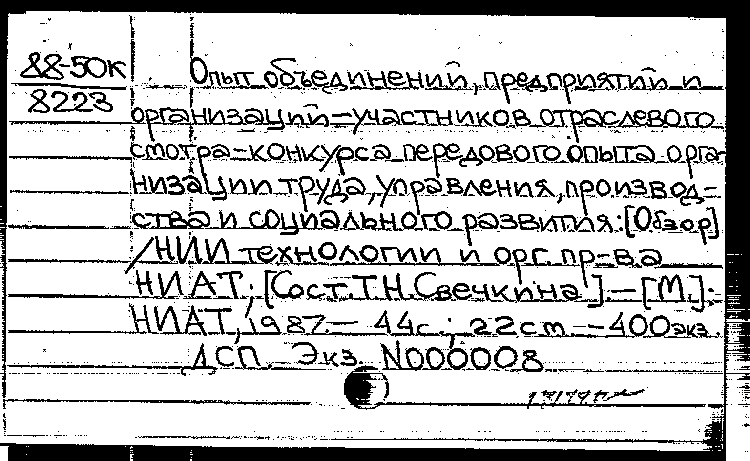 88-50К
8223
Опыт объединений, предприятий и
организаций-участников отраслевого
смотра-конкурса передового опыта орга-
низации труда, управления, производ-
ства и социального развития: [Обзор]
/НИИ технологии и орг. пр-ва
НИАТ; [Сост. Т.Н. Свечкина]. — [М.]:
НИАТ, 1987. — 44с.; 22см. — 400экз.
ДСП. Экз. N000008